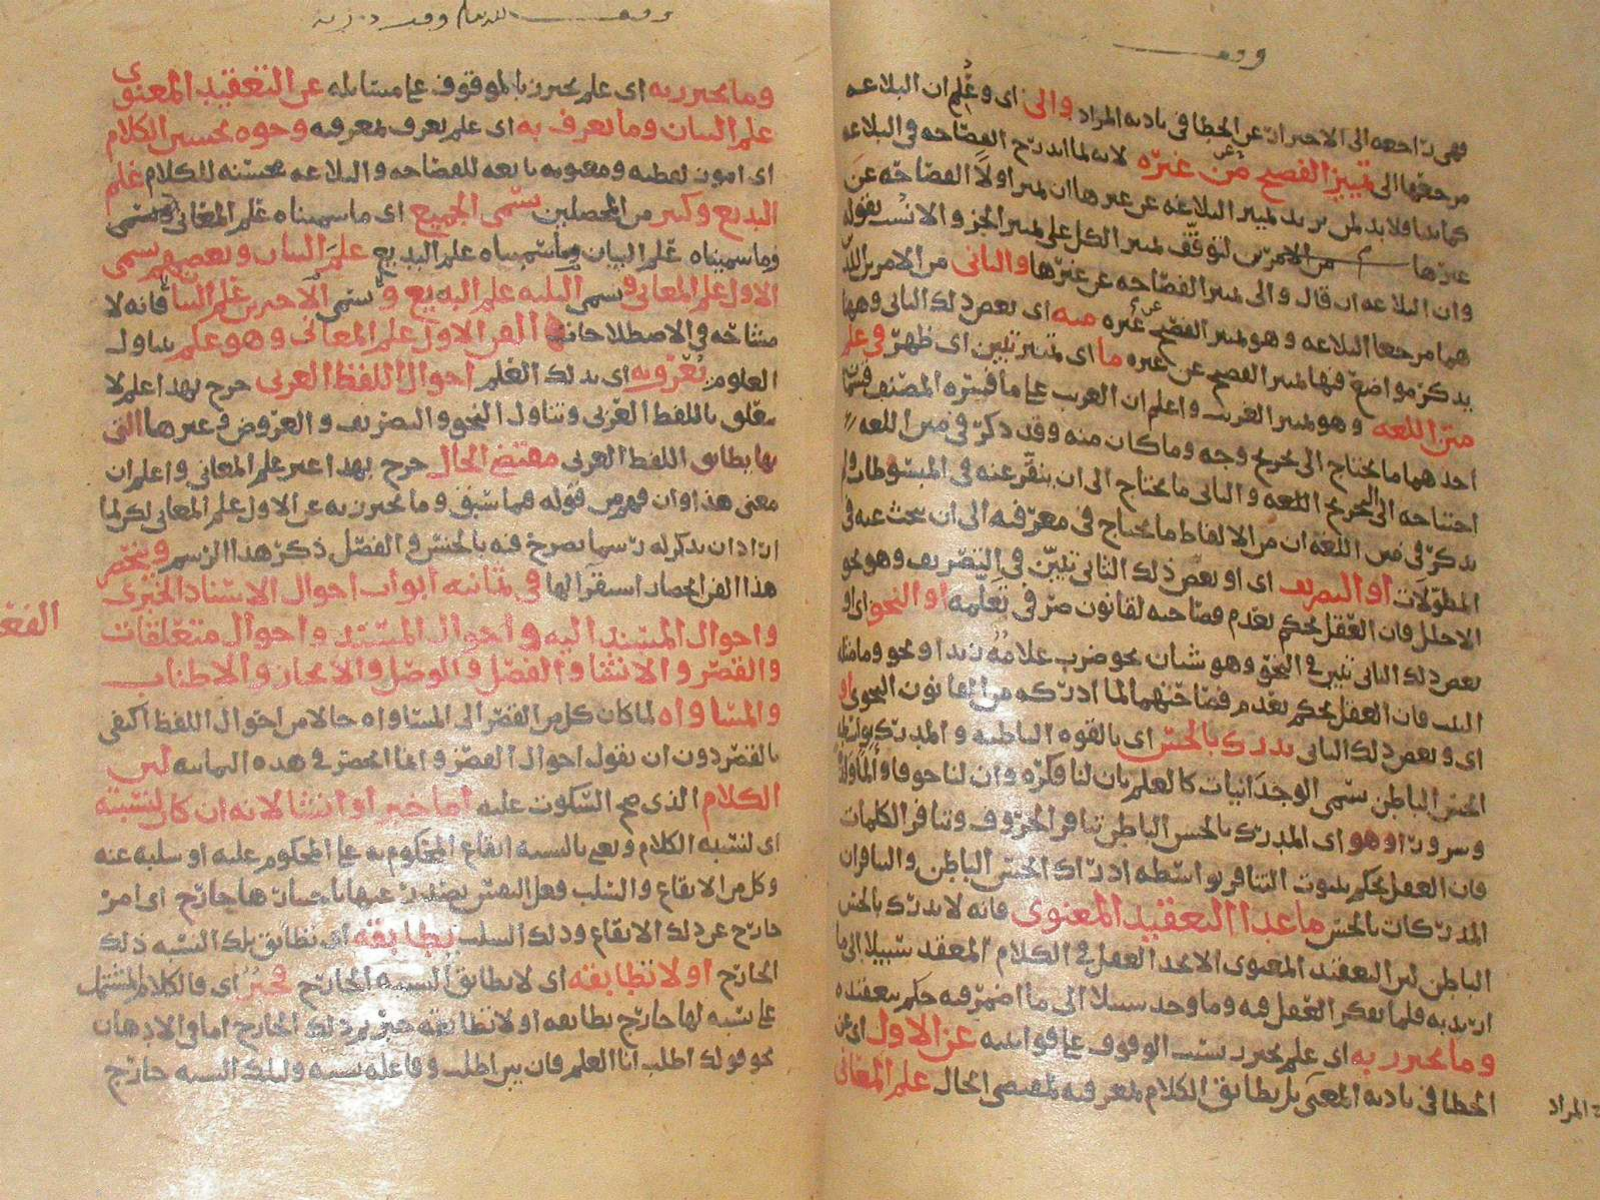 فهى راجعه الى الاحتراز عن الخطا فى تاديه المراد والى اى وعلم ان البلاغه
مرجعها الى تمييز الفصيح من غيره لانه لما اندرج الفصاحه فى البلاغه
كما بينا فلا بد لمن يريد تمييز البلاغه عن غيرها ان يميز اولا الفصاحه عن
غيرها من الامرين لتوقف تميز الكل على تميز الجز والانسب بقوله
وان البلاغه ان قال والى تميز الفصاحه عن غيرها والثانى من الامرين اللذ
هما مرجعا البلاغه وهو تميز الفصيح عن غيره منه اى بعض ذلك الثانى وهها
يذكر مواضع فيها تميز الفصيح عن غيره ما اى تميز تبين اى ظهر فى علم
متن اللغه وهو تميز الغريب واعلم ان الغريب على ما فسره المصنف قسما
احدهما ما يحتاج الى تخريج وجه وما كان منه وقد ذكر فى متن اللغه
احتياجه الى التخريج اللغه والثانى ما يحتاج الى ان ينقر عنه فى المبسوطات ولم
يذكر فى متن اللغه ان من الالفاظ ما يحتاج فى معرفته الى ان يبحث عنه فى
المطولات او التصريف اى او بعض ذلك الثانى تبين فى التصريف وهو نحو
الاجلل فان العقل يحكم بعدم فصاحته لقانون صرفى تعلمه او النحو اى او
بعض ذلك الثانى تبين فى النحو وهو شيان نحو ضرب غلامه زيدا ونحو وما مثله
البيت فان العقل يحكم بعدم فصاحتهما لما ادركه من القانون النحوى او
اى وبعض ذلك الثانى يدرك بالحس اى بالقوه الباطنه والمدرك بواسطه
الحس الباطن يسمى الوجدانيات كالعلم بان لنا فكره وان لنا خوفا والما ولذه
وسرورا وهو اى المدرك بالحس الباطن تنافر الحروف وتنافر الكلمات
فان العقل يحكم بثبوت التنافر بواسطه ادراك الحس الباطن والتنافران
المدركات بالحس ما عدا التعقيد المعنوى فانه لا يدرك بالحس
الباطن لان التعقيد المعنوى لا يجد العقل فى الكلام المعقد سبيلا الى ما
اريد به فلما تفكر العقل فيه وما وجد سبيلا الى ما اضمر فيه حكم بتعقيده
وما يحترز به اى علم يحترز بسبب الوقوف على قوانينه عن الاول اى عن
الخطا فى تاديه المعنى بل يطابق الكلام بمعرفته لمقتضى الحال علم المعانى
المراد
وما يحترز به اى علم يحترز بالموقوف على مسائله عن التعقيد المعنوى
علم البيان وما يعرف به اى علم يعرف بمعرفته وجوه تحسين الكلام
اى امور لفظيه ومعنويه تابعه للفصاحه والبلاغه محسنه للكلام علم
البديع وكثير من المحصلين يسمى الجميع اى ما سميناه علم المعانى
وما سميناه علم البيان وما سميناه علم البديع علم البيان وبعضهم يسمى
الاول علم المعانى ويسمى الثلثه علم البديع ويسمى الاخيرين علم البيان فانه لا
مشاحه فى الاصطلاحات الفن الاول علم المعانى وهو علم يتناول
العلوم يعرف به اى بذلك العلم احوال اللفظ العربى خرج بهذا علم لا
يتعلق باللفظ العربى وتناول النحو والتصريف والعروض وغيرها التى
بها يطابق اللفظ العربى مقتضى الحال خرج بهذا غير علم المعانى واعلم ان
معنى هذا وان فهم من قوله فيما سبق وما يحترز به عن الاول علم المعانى لكن لما
اراد ان يذكر له رسما يصرح فيه بالجنس والفصل ذكر هذا الرسم وينحصر
هذا الفن انحصار استقرا لها فى ثمانيه ابواب احوال الاسناد الخبرى
واحوال المسند اليه واحوال المسند واحوال متعلقات
الفعل
والقصر والانشا والفصل والوصل والايجاز والاطناب
والمساواه لما كان كل من القصر الى المساواه حالا من احوال اللفظ اكتفى
بالقصر دون ان يقول احوال القصر وانما انحصر فى هذه الثمانيه لان
الكلام الذى صح السكوت عليه اما خبر او انشا لانه ان كان لنسبته
اى لنسبه الكلام ونعنى بالنسبه ايقاع المحكوم به على المحكوم عليه او سلبه عنه
وكل من الايقاع والسلب فعل النفس يصدر عنها باختيارها خارج اى امر
خارج عن ذلك الايقاع وذلك السلب يطابقه اى تطابق تلك النسبه ذلك
الخارج او لا تطابقه اى لا تطابق النسبه الخارج فخبر اى فالكلام المشتمل
على نسبه لها خارج تطابقه او لا تطابقه خبر يرد ذلك الخارج اما فى الاذهان
نحو قولك اطلب انا العلم فان بين اطلب وفاعله نسبه ولتلك النسبه خارج